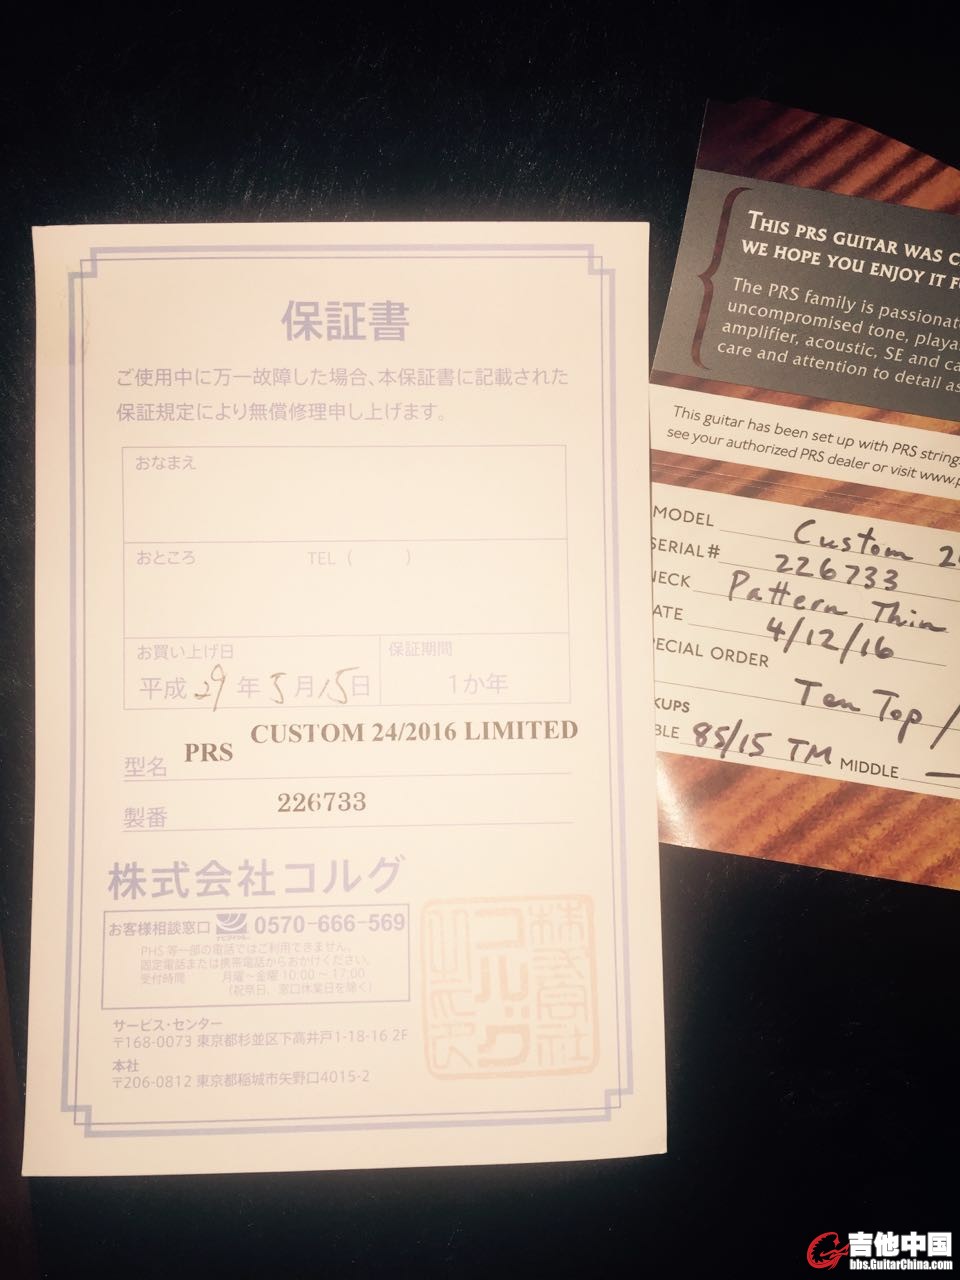 保証書
ご使用中に万一故障した場合、本保証書に記載された
保証規定により無償修理申し上げます。
おなまえ
おところ TEL ( )
お買い上げ日
平成29年5月15日
保証期間
1か年
型名 PRS CUSTOM 24/2016 LIMITED
製番 226733
株式会社コルグ
お客様相談窓口 0570-666-569
PHS等一部の電話ではご利用できません。
固定電話または携帯電話からおかけください。
受付時間 月曜～金曜 10:00～17:00
(祝祭日、窓口休業日を除く)
サービス・センター
〒168-0073 東京都杉並区下高井戸1-18-16 2F
本社
〒206-0812 東京都稲城市矢野口4015-2
株式会社
コルグ
THIS PRS GUITAR WAS C
WE HOPE YOU ENJOY IT F
The PRS family is passionat
uncompromised tone, playa
amplifier, acoustic, SE and ca
care and attention to detail as
This guitar has been set up with PRS string
see your authorized PRS dealer or visit www.p
MODEL Custom 2
SERIAL# 226733
NECK Pattern Thin
ATE 4/12/16
PECIAL ORDER
Ten Top /
KUPS
BLE 85/15 TM MIDDLE —
吉他中国
bbs.GuitarChina.com